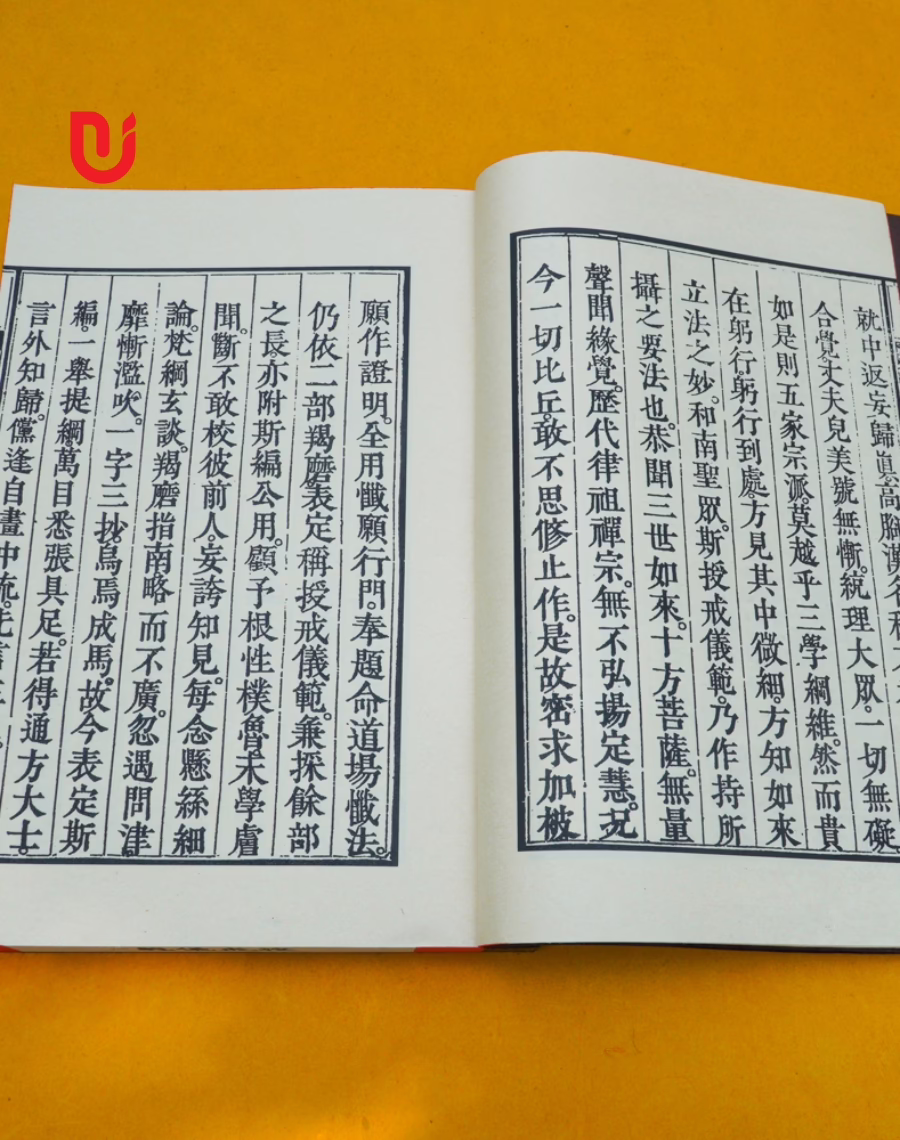 就中返妄歸眞高胸漢名稱
合覺丈夫兒美號無慚統理大眾一切無礙
如是則五家宗派莫越乎三學綱維然而貴
在躬行躬行到處方見其中微細方知如來
立法之妙和南聖眾斯授戒儀範乃作持所
攝之要法也恭聞三世如來十方菩薩無量
聲聞緣覺歷代律祖禪宗無不弘揚定慧況
今一切比丘敢不思修止作是故密求加被
願作證明。全用懺願行門。奉題命道場懺法。
仍依二部羯磨表定稱授戒儀範。兼採餘部
之長。亦附斯編公用。顧予根性樸魯。未學膚
聞。斷不敢校彼前人。妄誇知見。每念懸絲細
論。梵綱玄談。羯磨指南略而不廣。忽遇問津
靡慚濫吹。一字三抄。烏焉成馬。故今表定斯
編。一舉提綱。萬目悉張具足。若得通方大士。
言外知歸。儻逢自畫中流。